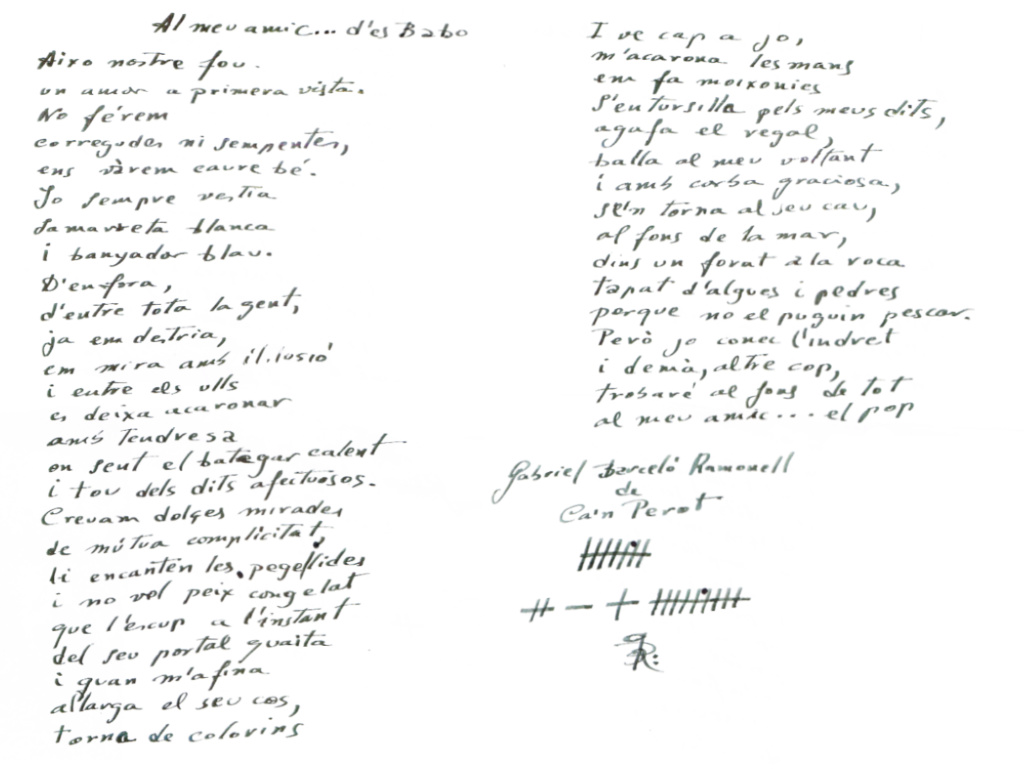 Al meu amic... d'es Babo
Aixo nostre fou.
un amor a primera vista.
No férem
corregudes ni sempentes,
ens vàrem caure bé.
Jo sempre vestia
samarreta blanca
i banyador blau.
D'enfora,
d'entre tota la gent,
ja em destria,
em mira amb il.lusió
i entre els ulls
es deixa acaronar
amb tendresa
on sent el bategar calent
i tou dels dits afectuosos.
Creuam dolçes mirades
de mútua complicitat,
li encanten les pegellides
i no vol peix congelat
que l'escup a l'instant
del seu portal guaita
i quan m'afina
allarga el seu cos,
torna de colorins
I ve cap a jo,
m'acarona les mans
em fa moixonies
S'entursilla pels meus dits,
agafa el regal,
balla al meu voltant
i amb corba graciosa,
se'n torna al seu cau,
al fons de la mar,
dins un forat a la roca
tapat d'algues i pedres
perque no el puguin pescar.
Però jo conec l'indret
i demà, altre cop,
trobaré al fons de tot
al meu amic... el pop
Gabriel Barceló Ramonell
de
Ca'n Perot